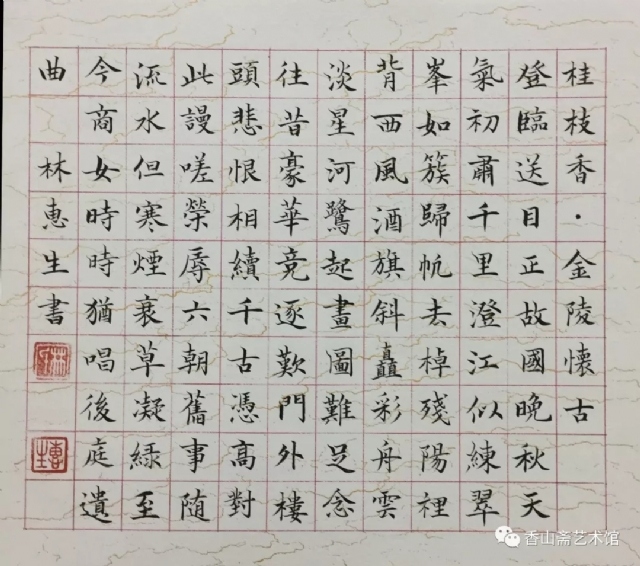 桂枝香·金陵懷古
登臨送目正故國晚秋天
氣初肅千里澄江似練翠
峯如簇歸帆去棹殘陽裡
背西風酒旗斜矗彩舟雲
淡星河鷺起畫圖難足念
往昔豪華竞逐歎門外樓
頭悲恨相續千古憑高對
此謾嗟榮辱六朝舊事随
流水但寒煙衰草凝緑至
今商女時時猶唱後庭遺
曲 林惠生書
惠生
香山斋艺术馆